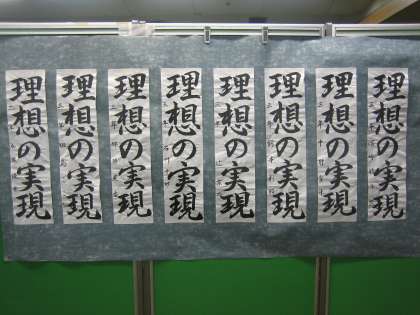 理想の実現
理想の実現
理想の実現
理想の実現
理想の実現
理想の実現
理想の実現
理想の実現